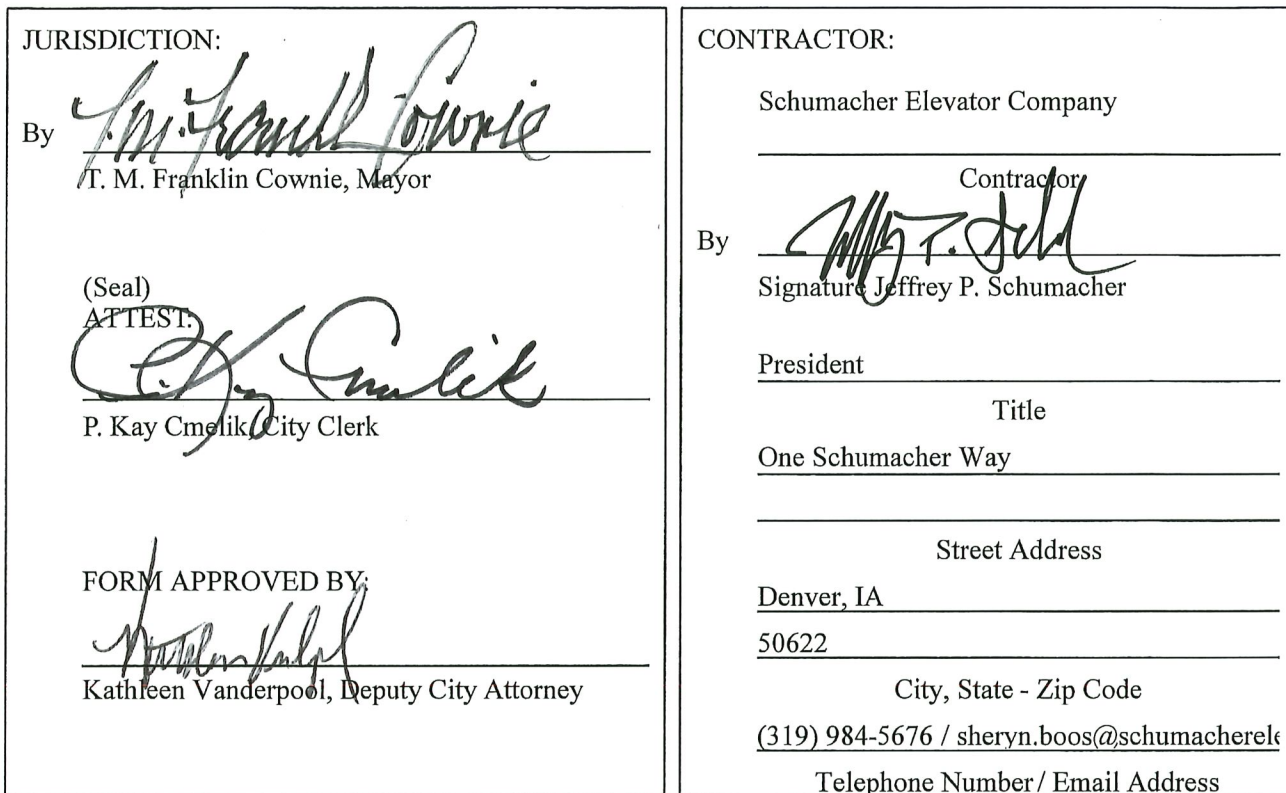 JURISDICTION:
By T. M. Franklin Cownie
T. M. Franklin Cownie, Mayor
(Seal)
ATTEST:
P. Kay Cmelik
P. Kay Cmelik, City Clerk
FORM APPROVED BY:
Kathleen Vanderpool, Deputy City Attorney
CONTRACTOR:
Schumacher Elevator Company
Contractor
By
Signature Jeffrey P. Schumacher
President
Title
One Schumacher Way
Street Address
Denver, IA
50622
City, State - Zip Code
(319) 984-5676 / sheryn.boos@schumacherele
Telephone Number / Email Address